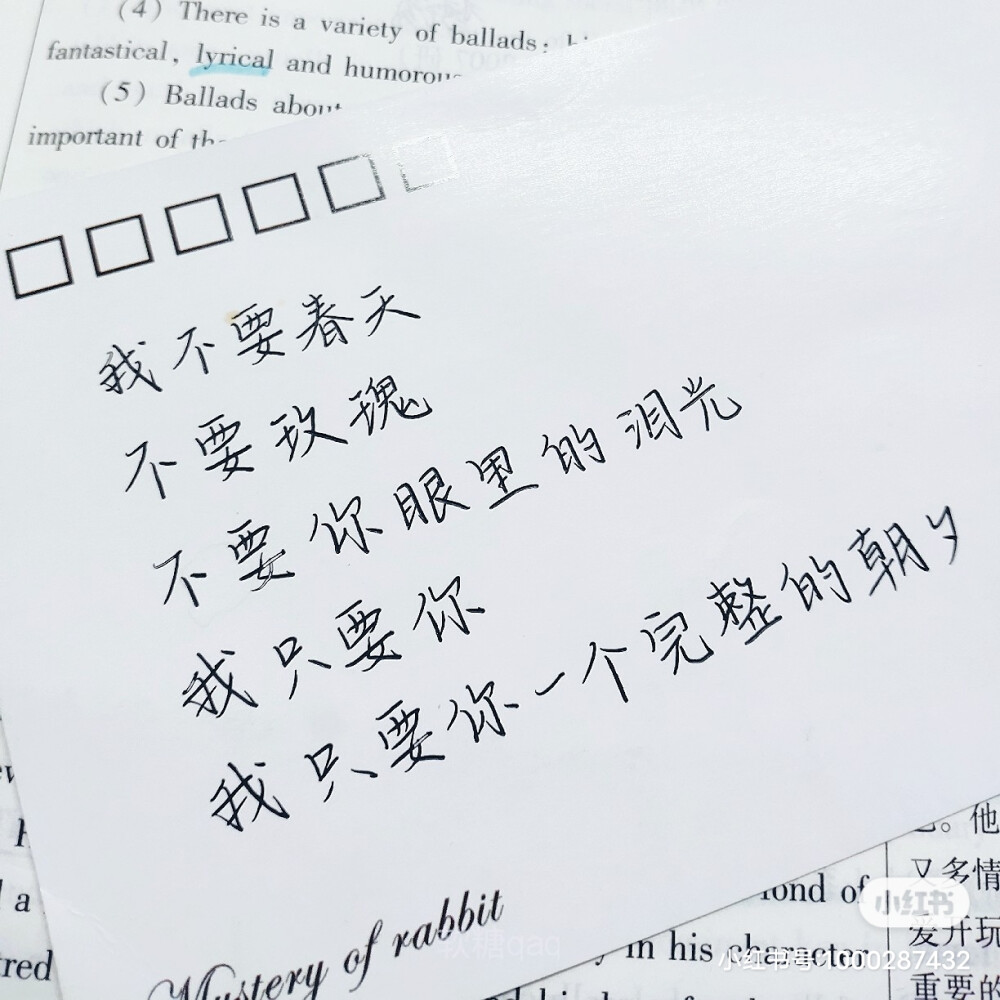 (4) There is a variety of ballads:
fantastical, lyrical and humorou
(5) Ballads about
important of the
我不要春天
不要玫瑰
不要你眼里的泪光
我只要你
我只要你一个完整的朝夕
Mystery of rabbit
a
red
fond of
in his character
他
又多情
爱开玩
重要的
软糖qaq
小红书
小红书号:1000287432